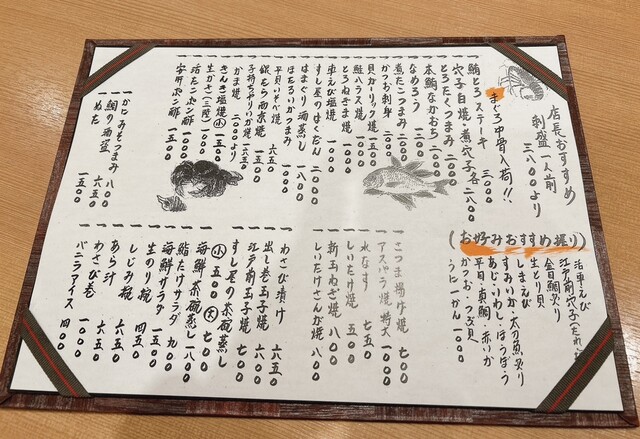 店長おすすめ
刺盛 一人前 三八〇〇より
まぐろ中骨入荷!!
一 鮪とろステーキ 三〇〇〇
一 穴子白焼・煮穴子 各二八〇〇
一 とろたくつまみ 二〇〇〇
一 本鮪なかおち 二〇〇〇
一 なめろう 一二〇〇
一 煮だこつまみ 二〇〇〇
一 かつお刺身
一 貝ガーリック焼 一五〇〇
一 鮭ハラス焼 一五〇〇
一 とろねぎま焼
一 車えび塩焼
一 すし屋のばくだん 二〇〇〇
一 はまぐり酒蒸し 一八〇〇
一 ほたるいかつまみ
一 平貝いそべ焼
一 銀だら西京焼 六五〇
一 子持ちやりいか焼
一 かま焼 二〇〇〇より
一 きんき塩焼 小
一 生がき(三ケ) 一五〇〇
一 活たこポン酢 一五〇〇
一 安肝ポン酢 一五〇〇
一 かにみそつまみ 八〇〇
一 鯛の酒盗 六五〇
一 ぬた 一五〇〇
(お好みおすすめ握り)
活車えび
江戸前穴子(たれ・
金目鯛炙り
生とり貝
しまえび
すみいか・太刀魚炙り
あじ・いわし・ほうぼう
平目・真鯛・赤いか
かつお・つぶ貝
うに一かん 一〇〇〇
一 さつま揚げ焼 七〇〇
一 アスパラ焼 特大 一〇〇〇
一 水なす 七五〇
一 しいたけ焼 五〇〇
一 新玉ねぎ焼 八〇〇
一 しいたけさんが焼 八〇〇
一 わさび漬け 六五〇
一 出し巻玉子焼 六五〇
一 江戸前玉子焼 六八〇
一 すし屋の茶碗蒸し
小 五〇〇 大 七〇〇
一 海鮮茶碗蒸し 一八〇〇
一 鮨だけサラダ 九〇〇
一 海鮮サラダ 一五〇〇
一 生のり椀 五〇〇
一 しじみ椀 四五〇
一 あら汁 六五〇
一 わさび巻 六五〇
一 バニラアイス 四〇〇